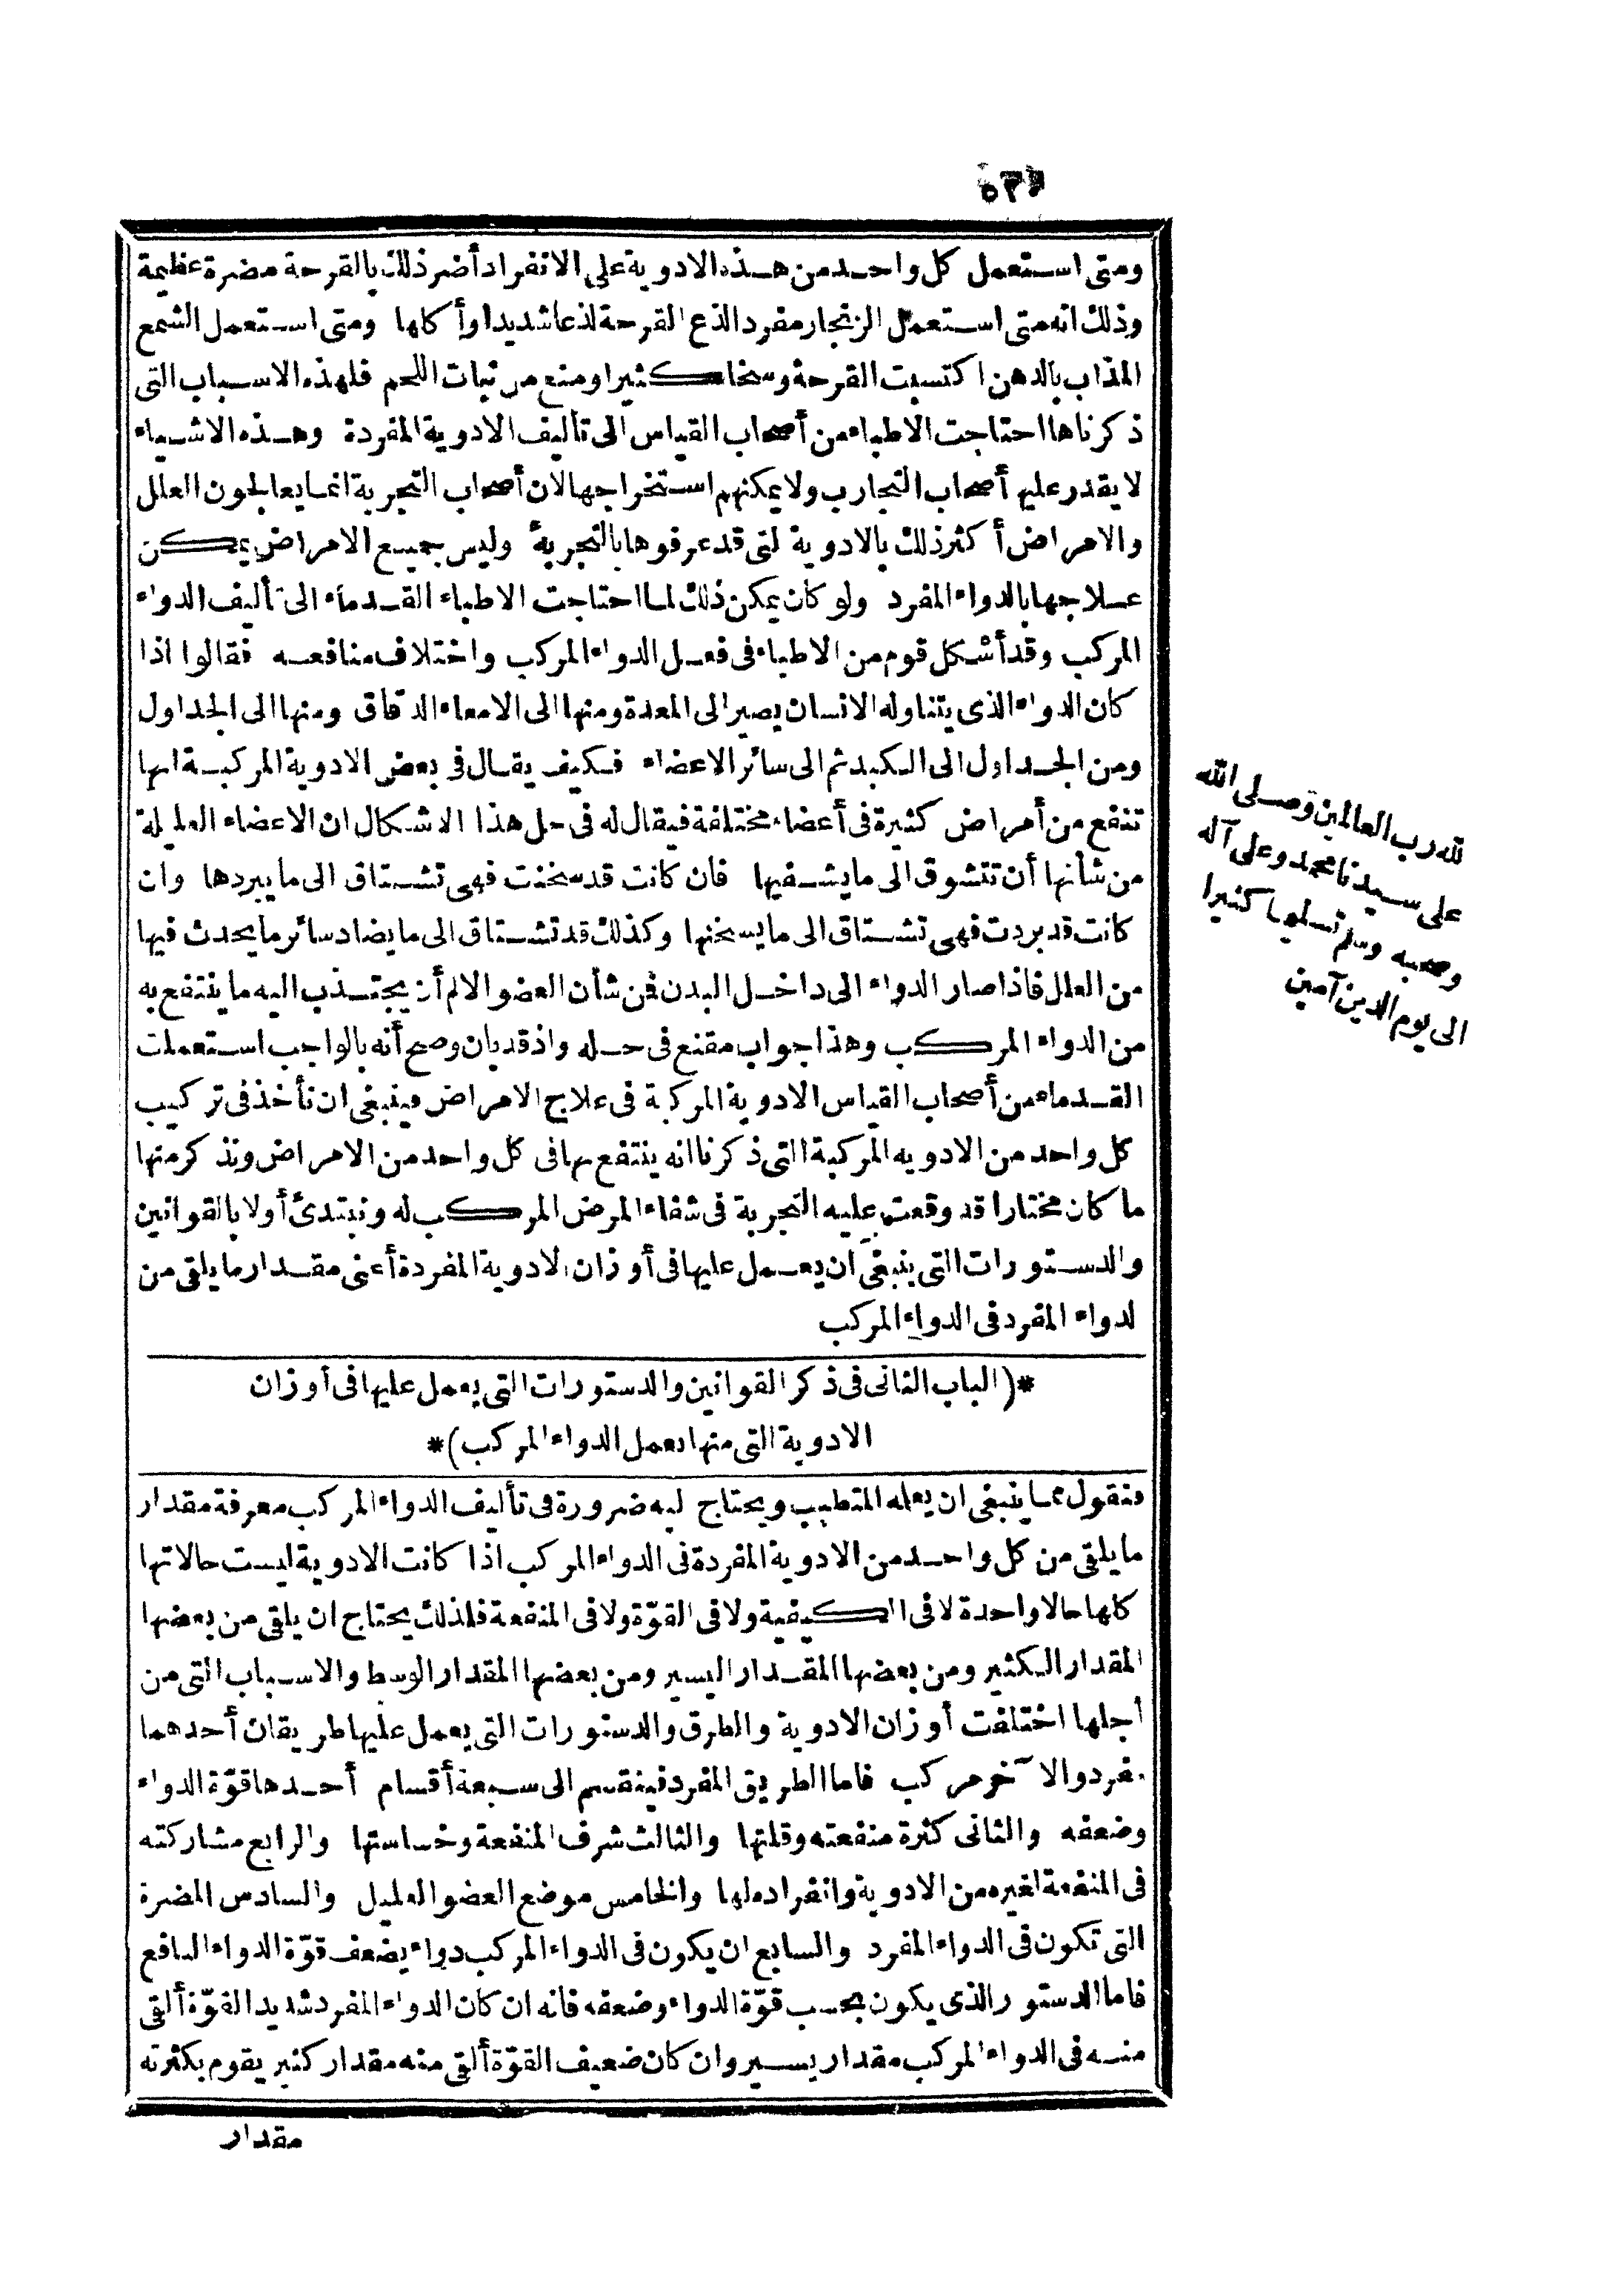 ومتى استعمل كل واحد من هذه الادوية على الانفراد أضر ذلك بالقرحة مضرة عظيمة
وذلك انه متى استعمل الزنجار مفرد الذع القرحة لذعا شديدا وأكلها ومتى استعمل الشمع
المذاب بالدهن اكتسبت القرحة وسخا كثيرا ومنع من نبات اللحم فلهذه الاسباب التى
ذكرناها احتاجت الاطباء من أصحاب القياس الى تأليف الادوية المفردة وهذه الاشياء
لا يقدر عليها أصحاب التجارب ولا يمكنهم استخراجها لان أصحاب التجربة انما يعالجون العلل
والامراض أكثر ذلك بالادوية لتى قد عرفوها بالتجربة وليس جميع الامراض يمكن
علاجها بالدواء المفرد ولو كان يمكن ذلك لما احتاجت الاطباء القدماء الى تأليف الدواء
المركب وقد أشكل قوم من الاطباء فى فعل الدواء المركب واختلاف منافعه فقالوا اذا
كان الدواء الذى يتناوله الانسان يصير الى المعدة ومنها الى الامعاء الدقاق ومنها الى الجداول
ومن الجداول الى الكبد ثم الى سائر الاعضاء فكيف يقال فى بعض الادوية المركبة انها
تنفع من أمراض كثيرة فى أعضاء مختلفة فيقال له فى حل هذا الاشكال ان الاعضاء العليلة
من شأنها أن تتشوق الى ما يشفيها فان كانت قد سخنت فهى تشتاق الى ما يبردها وان
كانت قد بردت فهى تشتاق الى ما يسخنها وكذلك قد تشتاق الى ما يضاد سائر ما يحدث فيها
من العلل فاذا صار الدواء الى داخل البدن فمن شأن العضو الالم أن يجتذب اليه ما ينتفع به
من الدواء المركب وهذا جواب مقنع فى حله واذ قد بان وصح أنه بالواجب استعملت
القدماء من أصحاب القياس الادوية المركبة فى علاج الامراض فينبغى ان نأخذ فى تركيب
كل واحد من الادويه المركبة التى ذكرنا انه ينتفع بها فى كل واحد من الامراض ونذكر منها
ما كان مختارا قد وقعت عليه التجربة فى شفاء المرض المركب له ونبتدئ أولا بالقوانين
والدستورات التى ينبغى ان يعمل عليها فى أوزان الادوية المفردة أعنى مقدار ما يلقى من
لدواء المفرد فى الدواء المركب
*(الباب الثانى فى ذكر القوانين والدستورات التى يعمل عليها فى أوزان
الادوية التى منها يعمل الدواء المركب)*
فنقول مما ينبغى ان يعلمه المتطبب ويحتاج ليه ضرورة فى تأليف الدواء المركب معرفة مقدار
ما يلقى من كل واحد من الادوية المفردة فى الدواء المركب اذا كانت الادوية ليست حالاتها
كلها حالا واحدة لا فى الكيفية ولا فى القوّة ولا فى المنفعة فلذلك يحتاج ان يلقى من بعضها
المقدار الكثير ومن بعضها المقدار اليسير ومن بعضها المقدار الوسط والاسباب التى من
أجلها اختلفت أوزان الادوية والطرق والدستورات التى يعمل عليها طريقان أحدهما
مفرد والآخر مركب فاما الطريق المفرد فينقسم الى سبعة أقسام أحدها قوّة الدواء
وضعفه والثانى كثرة منفعته وقلتها والثالث شرف المنفعة وخساستها والرابع مشاركته
فى المنفعة لغيره من الادوية وانفراده لها والخامس موضع العضو العليل والسادس المضرة
التى تكون فى الدواء المفرد والسابع ان يكون فى الدواء المركب دواء يضعف قوّة الدواء النافع
فاما الدستور الذى يكون بحسب قوّة الدواء وضعفه فانه ان كان الدواء المفرد شديد القوّة ألقى
منه فى الدواء المركب مقدار يسير وان كان ضعيف القوّة ألقى منه مقدار كثير يقوم بكثرته
مقدار
لله رب العالمين وصلى الله
على سيدنا محمد وعلى آله
وصحبه وسلم تسليما كثيرا
الى يوم الدين آمين